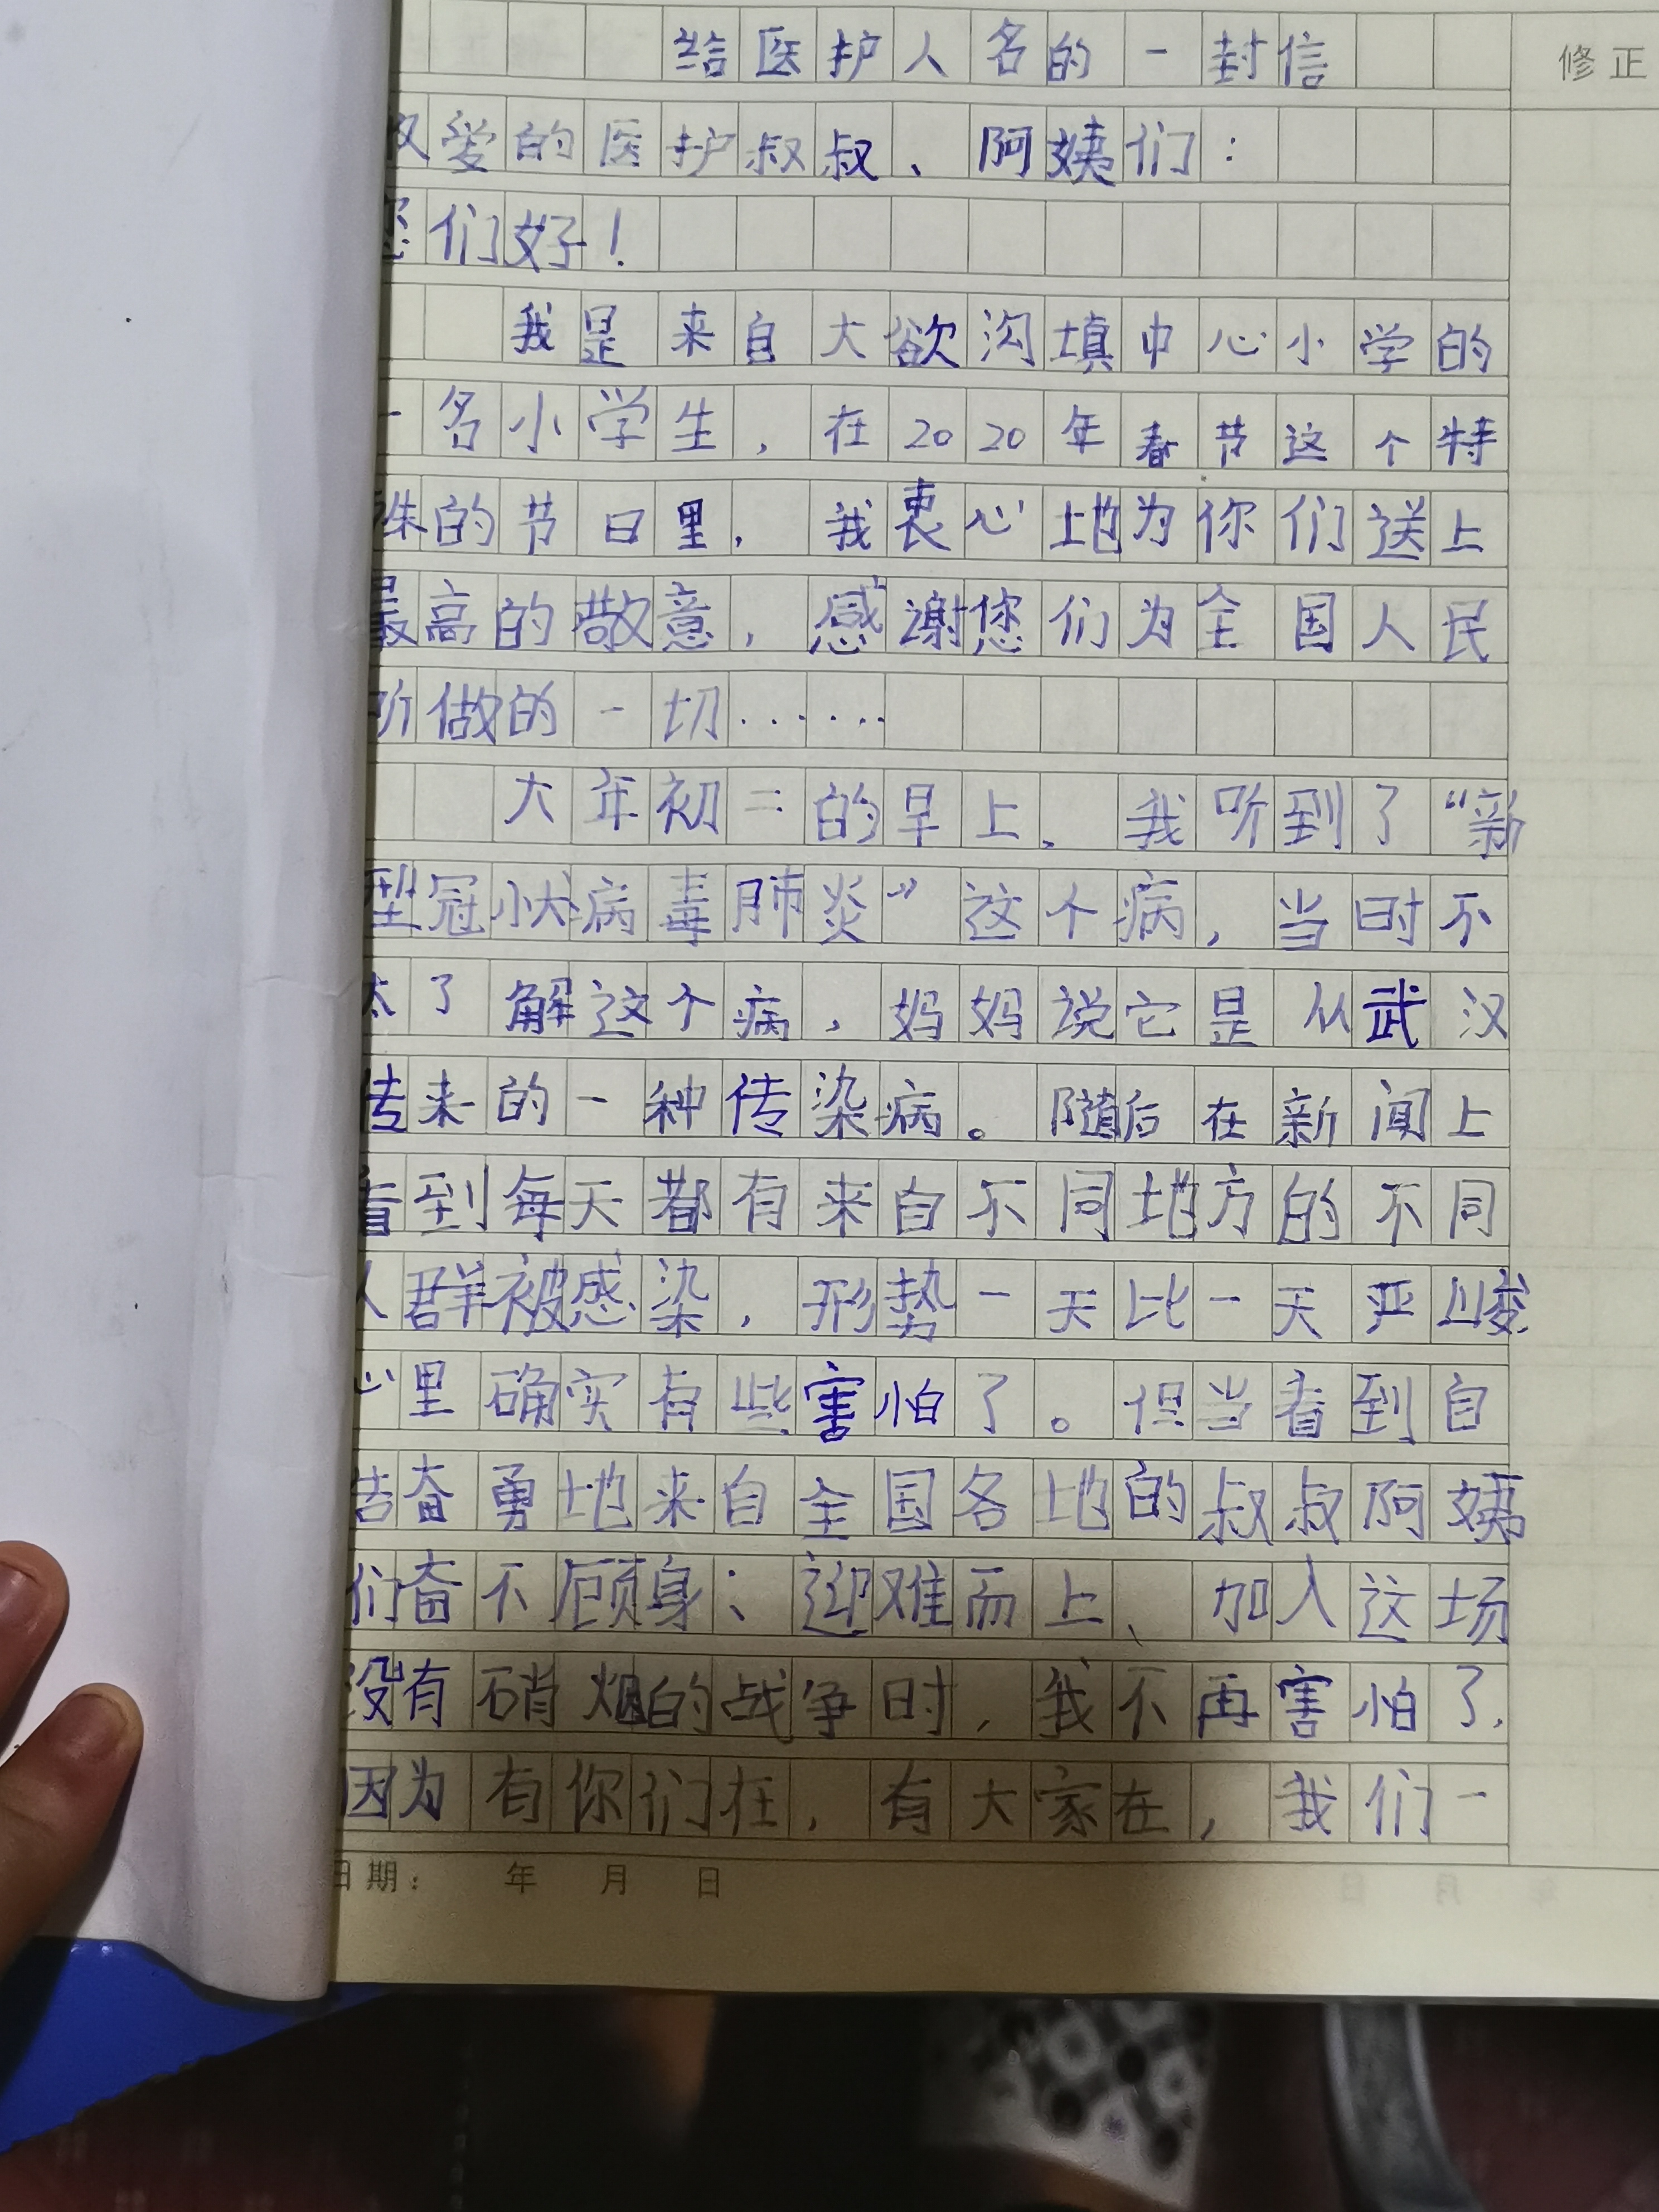 给医护人名的一封信
修正
敬爱的医护叔叔、阿姨们：
您们好！
我是来自大欲沟填中心小学的
一名小学生，在2020年春节这个特
殊的节日里，我衷心地为你们送上
最高的敬意，感谢您们为全国人民
所做的一切……
大年初二的早上、我听到了“新
型冠状病毒肺炎”这个病，当时不
太了解这个病，妈妈说它是从武汉
传来的一种传染病。随后在新闻上
看到每天都有来自不同地方的不同
人群被感染，形势一天比一天严峻
心里确实有些害怕了。但当看到自
告奋勇地来自全国各地的叔叔阿姨
们奋不顾身、迎难而上、加入这场
没有硝烟的战争时，我不再害怕了，
因为有你们在，有大家在，我们一
日期： 年 月 日